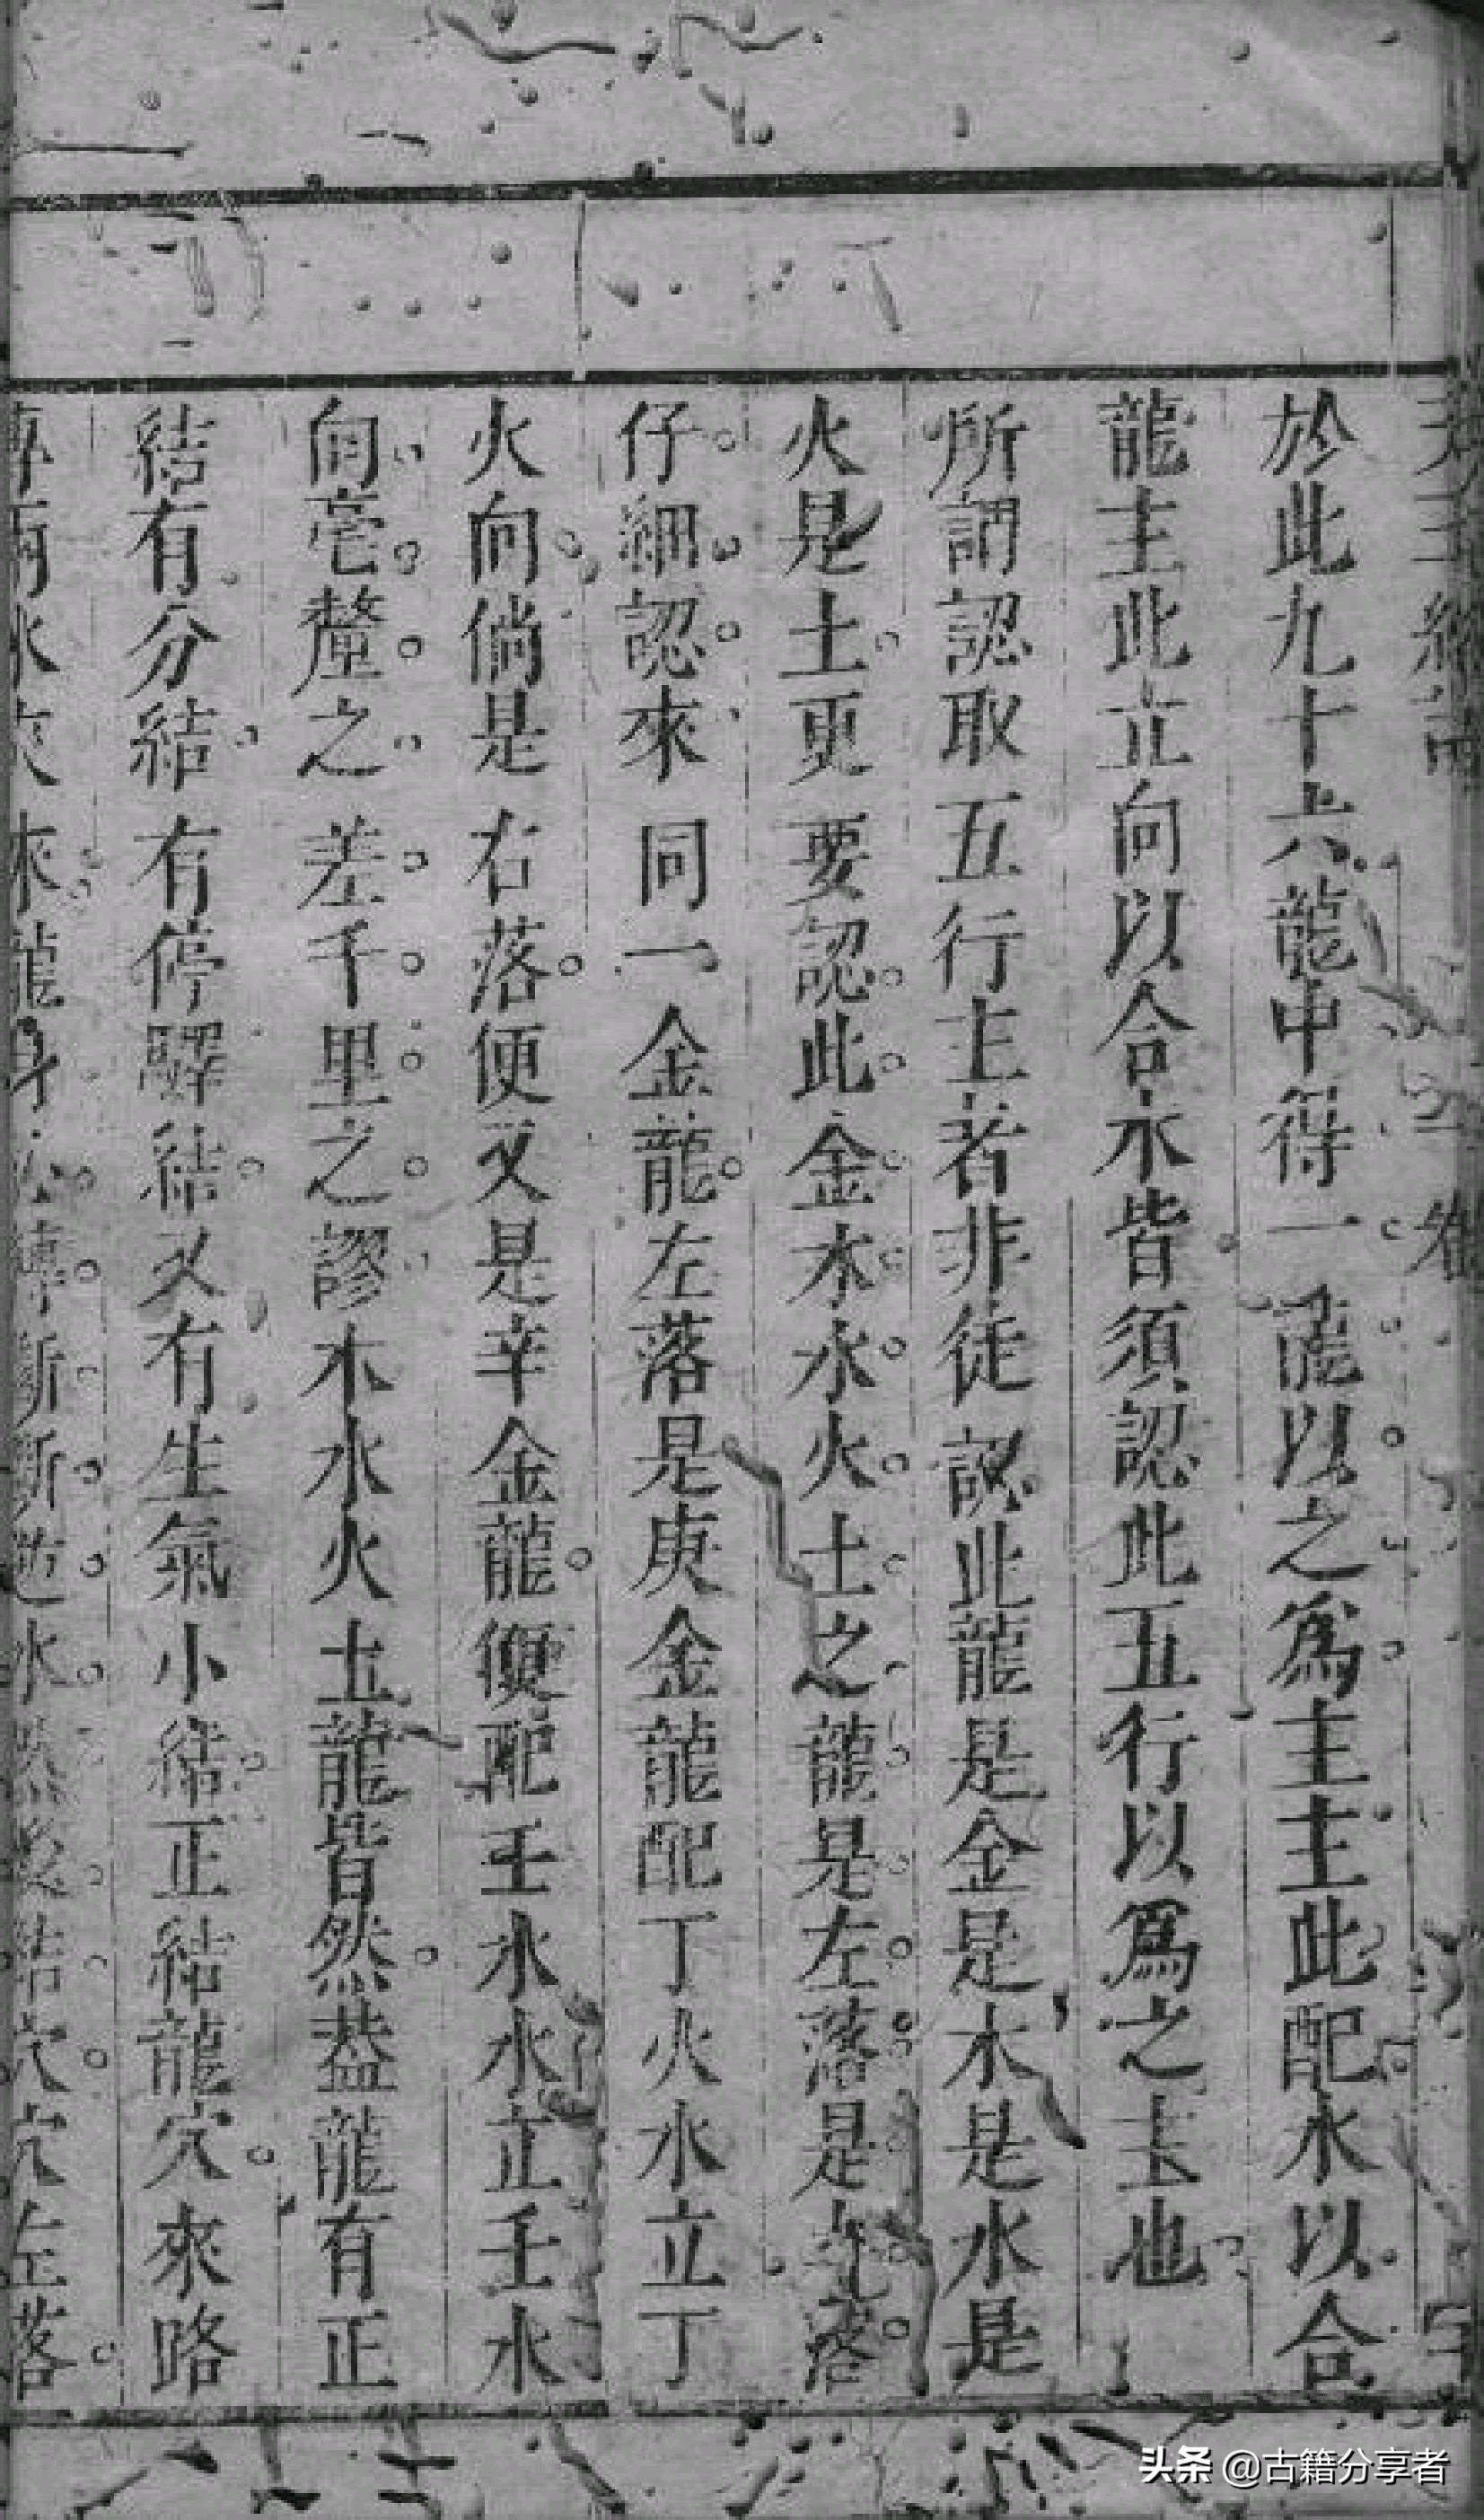 天玉經說 二卷
於此九十六龍中得一龍以之爲主主此配水以合
龍主此立向以合水皆須認此五行以爲之主也
所謂認取五行主者非徒認此龍是金是木是水是
火是土更要認此金木水火土之龍是左落是右落
仔細認來同一金龍左落是庚金龍配丁火水立丁
火向倘是右落便又是辛金龍便配壬水水立壬水
向毫釐之差千里之謬木水火土龍皆然葢龍有正
結有分結有停驛結又有生氣小結正結龍穴來路
兩水夾來龍身 水 結穴穴左落
頭条 @古籍分享者